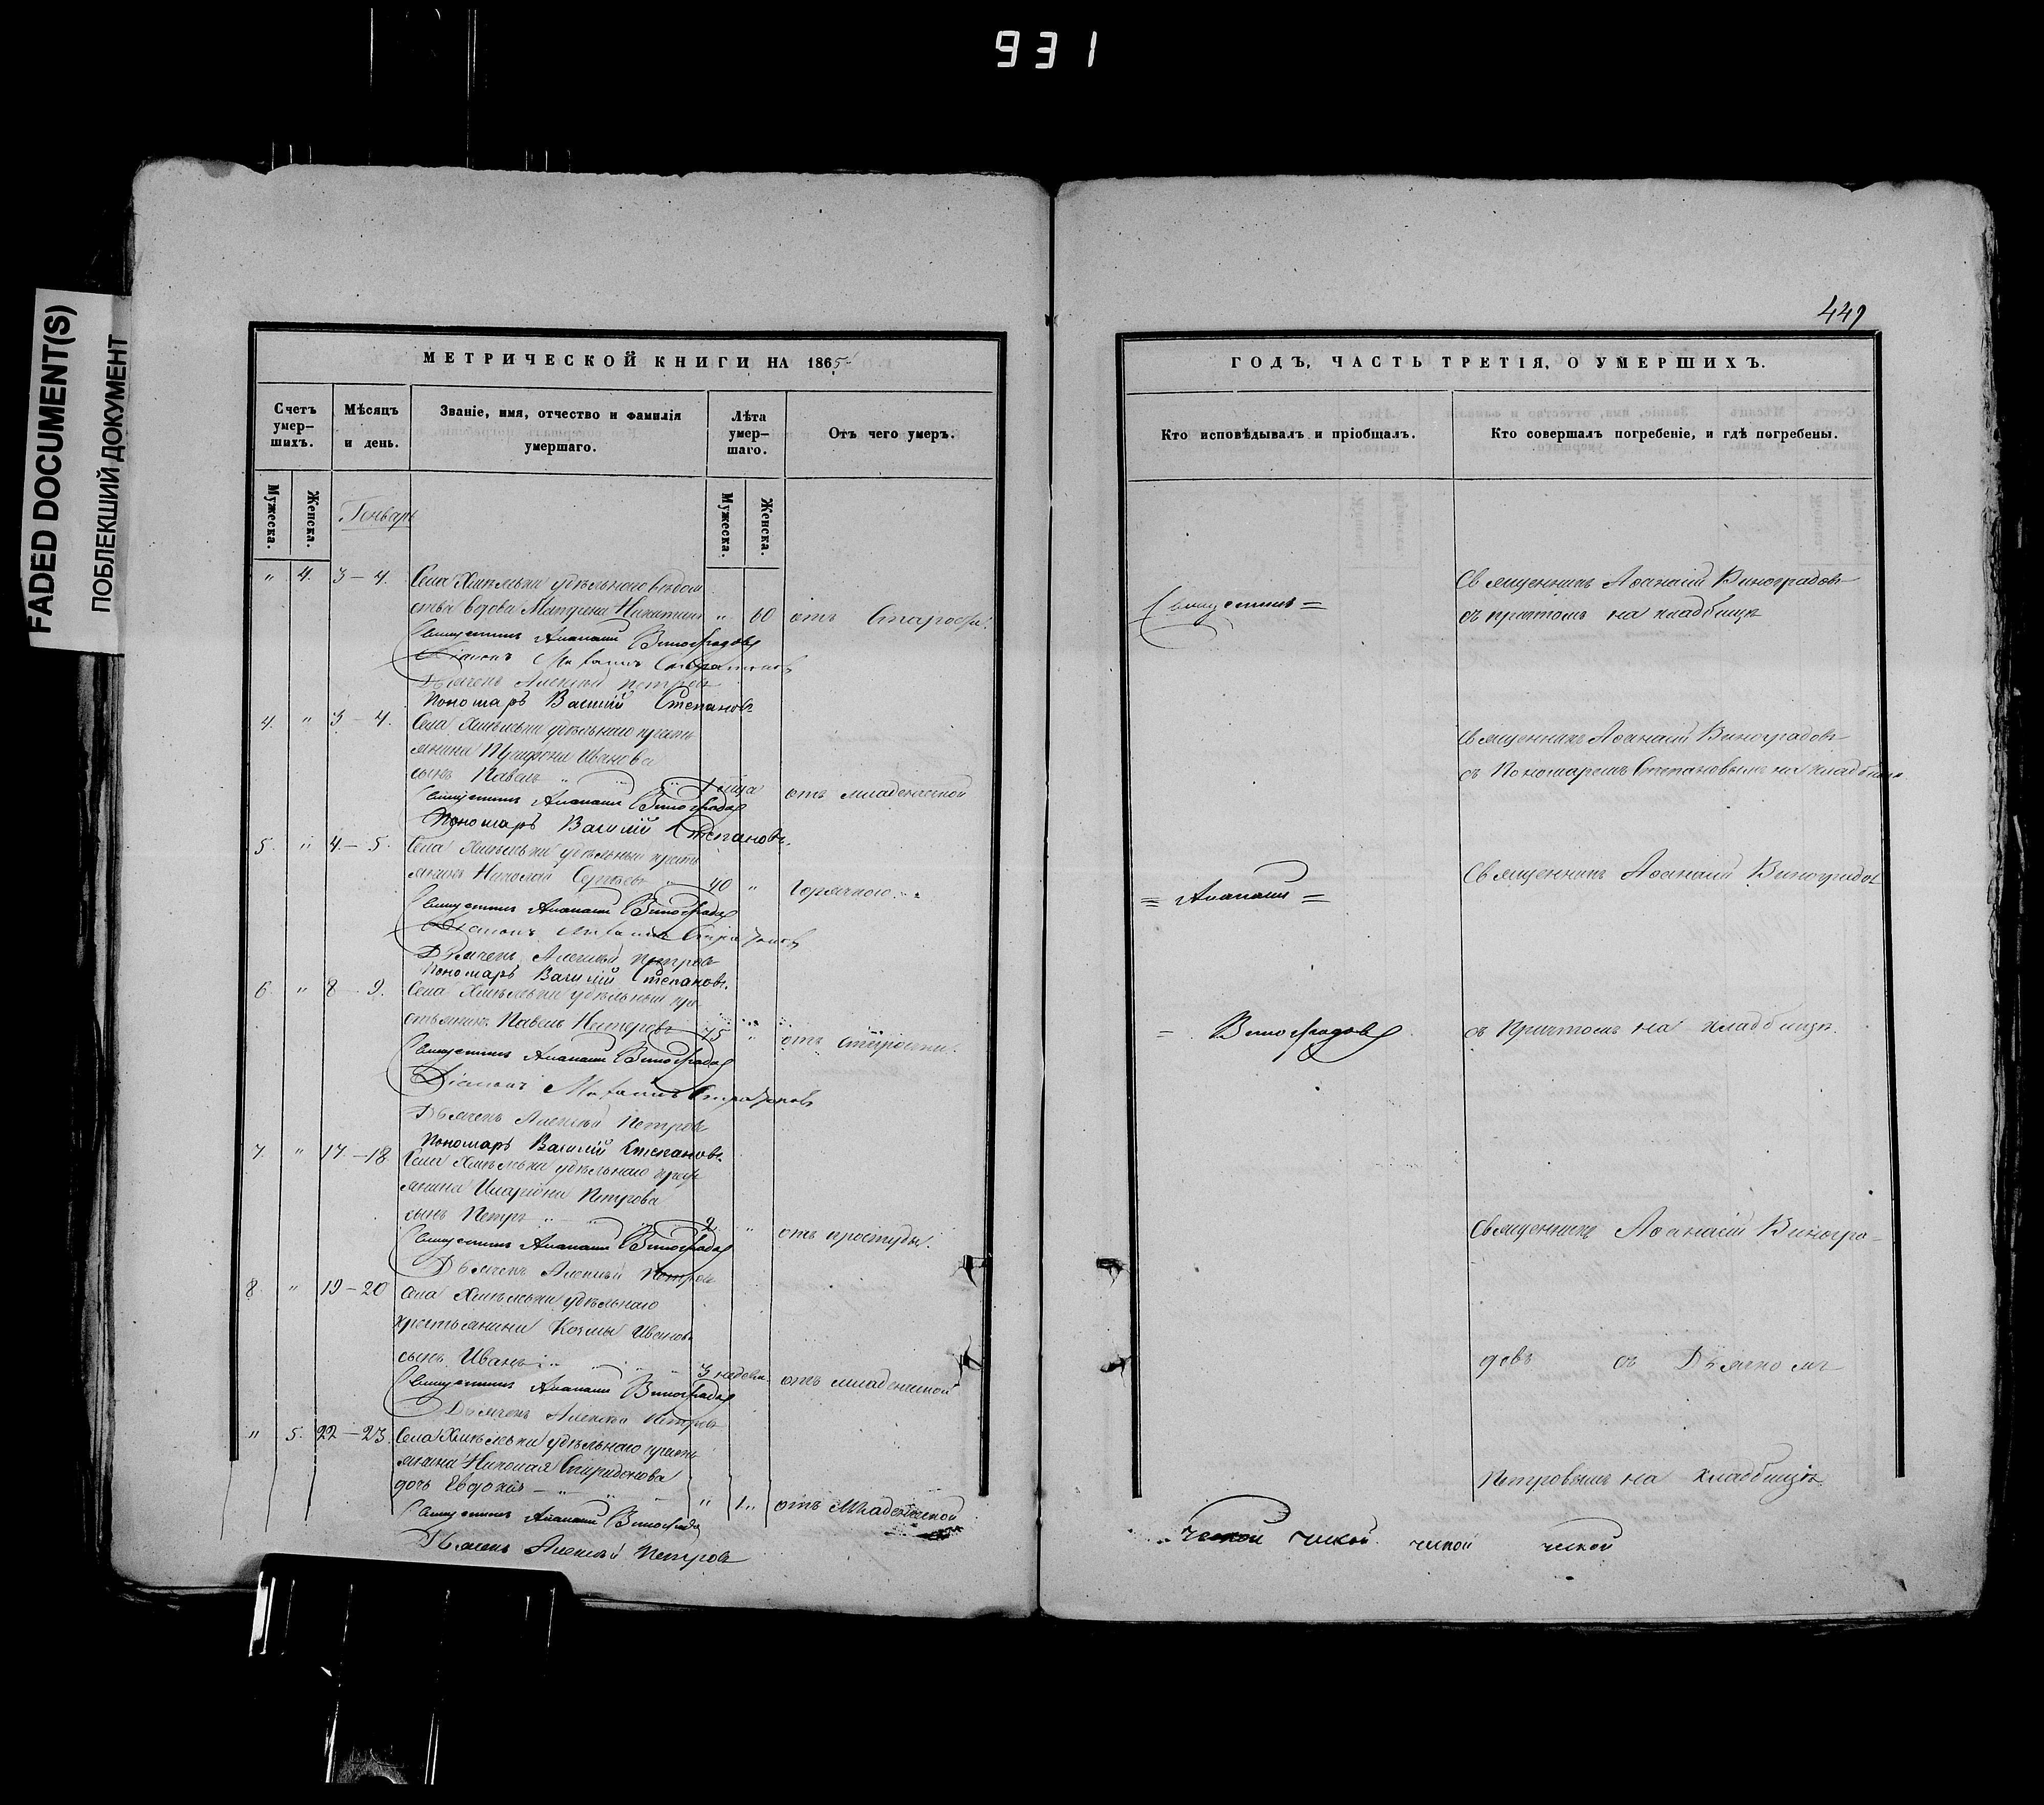 931
FADED DOCUMENT(S)
ПОБЛЕКШИЙ ДОКУМЕНТ
МЕТРИЧЕСКОЙ КНИГИ НА 1865
Счетъ умер-шихъ.
Мѣсяцъ и день.
Званіе, имя, отчество и фамилія умершаго.
Лѣта умер-шаго.
Отъ чего умеръ.
Мужеска.
Женска.
Мужеска.
Женска.
Генварь
" 4. 3 – 4. Села удѣльнаго вѣдом
ства вдова Матрена Никитина " 60 отъ Старости.
Священникъ Аѳанасій Виноградовъ
Діаконъ
Дьячекъ Алексѣй Петровъ
Пономарь Василій Степановъ
4. " 3 – 4. Села удѣльнаго кресть
янина Иванова
сынъ Павелъ отъ младенческой
Священникъ Аѳанасій Виноградовъ
Пономарь Василій Степановъ.
5. " 4 – 5. Села удѣльный кресть
янинъ Николай Сергѣевъ 40 " Горячкою
Священникъ Аѳанасій Виноградовъ
Діаконъ
Дьячекъ Алексѣй Петровъ
Пономарь Василій Степановъ.
6. " 8 – 9. Села удѣльный кре
стьянинъ Павелъ 75 " отъ старости.
Священникъ Аѳанасій Виноградовъ
Діаконъ
Дьячекъ Алексѣй Петровъ
Пономарь Василій Степановъ.
7. " 17 – 18. Села удѣльнаго кресть
янина Иларіона Петрова
сынъ Петръ 2 " отъ простуды.
Священникъ Аѳанасій Виноградовъ
Дьячекъ Алексѣй Петровъ
8. " 19 – 20 Села удѣльнаго
крестьянина Козмы Иванова
сынъ Иванъ 3 недели отъ младенческой
Священникъ Аѳанасій Виноградовъ
Дьячекъ Алексѣй Петровъ
" 5. 22 – 23. Села удѣльнаго кресть
янина Николая Спиридонова
дочь Евдокія " 1 " отъ Младенческой
Священникъ Аѳанасій Виноградовъ
Дьячекъ Алексѣй Петровъ
449
ГОДЪ, ЧАСТЬ ТРЕТІЯ, О УМЕРШИХЪ.
Кто исповѣдывалъ и пріобщалъ.
Кто совершалъ погребеніе, и гдѣ погребены.
Священникъ =
Священникъ Аѳанасій Виноградовъ
съ причтомъ на кладбищѣ
Священникъ Аѳанасій Виноградовъ
съ Пономаремъ Степановымъ на кладбищѣ
= Аѳанасій =
Священникъ Аѳанасій Виноградовъ
= Виноградовъ
съ Причтомъ на кладбищѣ.
Священникъ Аѳанасій Виногра-
довъ съ Дьячкомъ
Петровымъ на кладбищѣ
ческой ческой ческой ческой